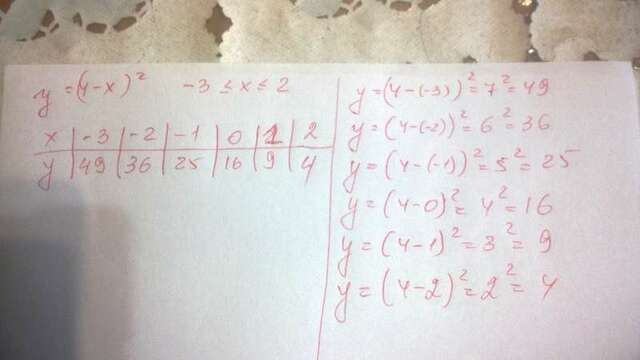 y = (4-x)² -3 ≤ x ≤ 2
x | -3 | -2 | -1 | 0 | 1 | 2
y | 49 | 36 | 25 | 16 | 9 | 4
y = (4-(-3))² = 7² = 49
y = (4-(-2))² = 6² = 36
y = (4-(-1))² = 5² = 25
y = (4-0)² = 4² = 16
y = (4-1)² = 3² = 9
y = (4-2)² = 2² = 4